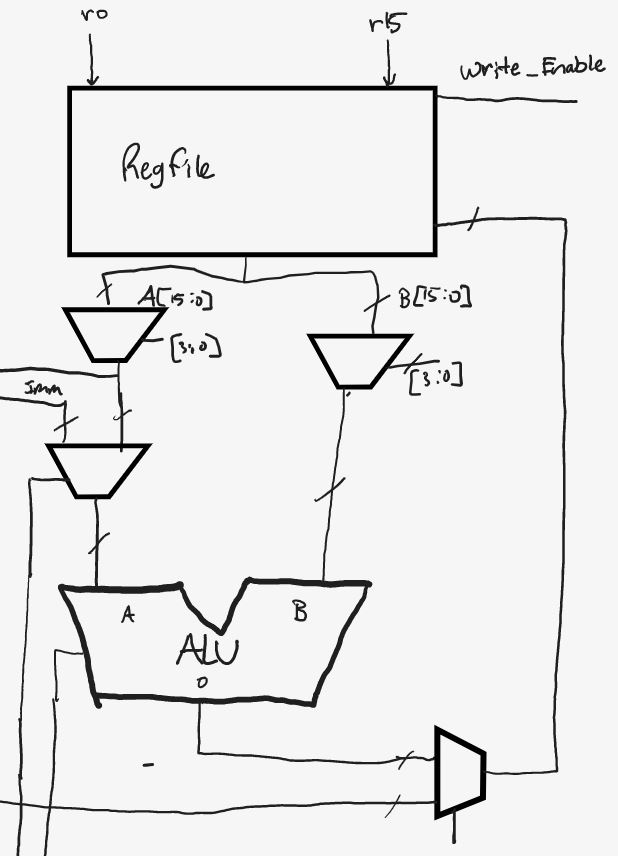 r0
r15
Write_Enable
RegFile
A[15:0]
B[15:0]
[3:0]
[3:0]
Imm
A
B
ALU
O